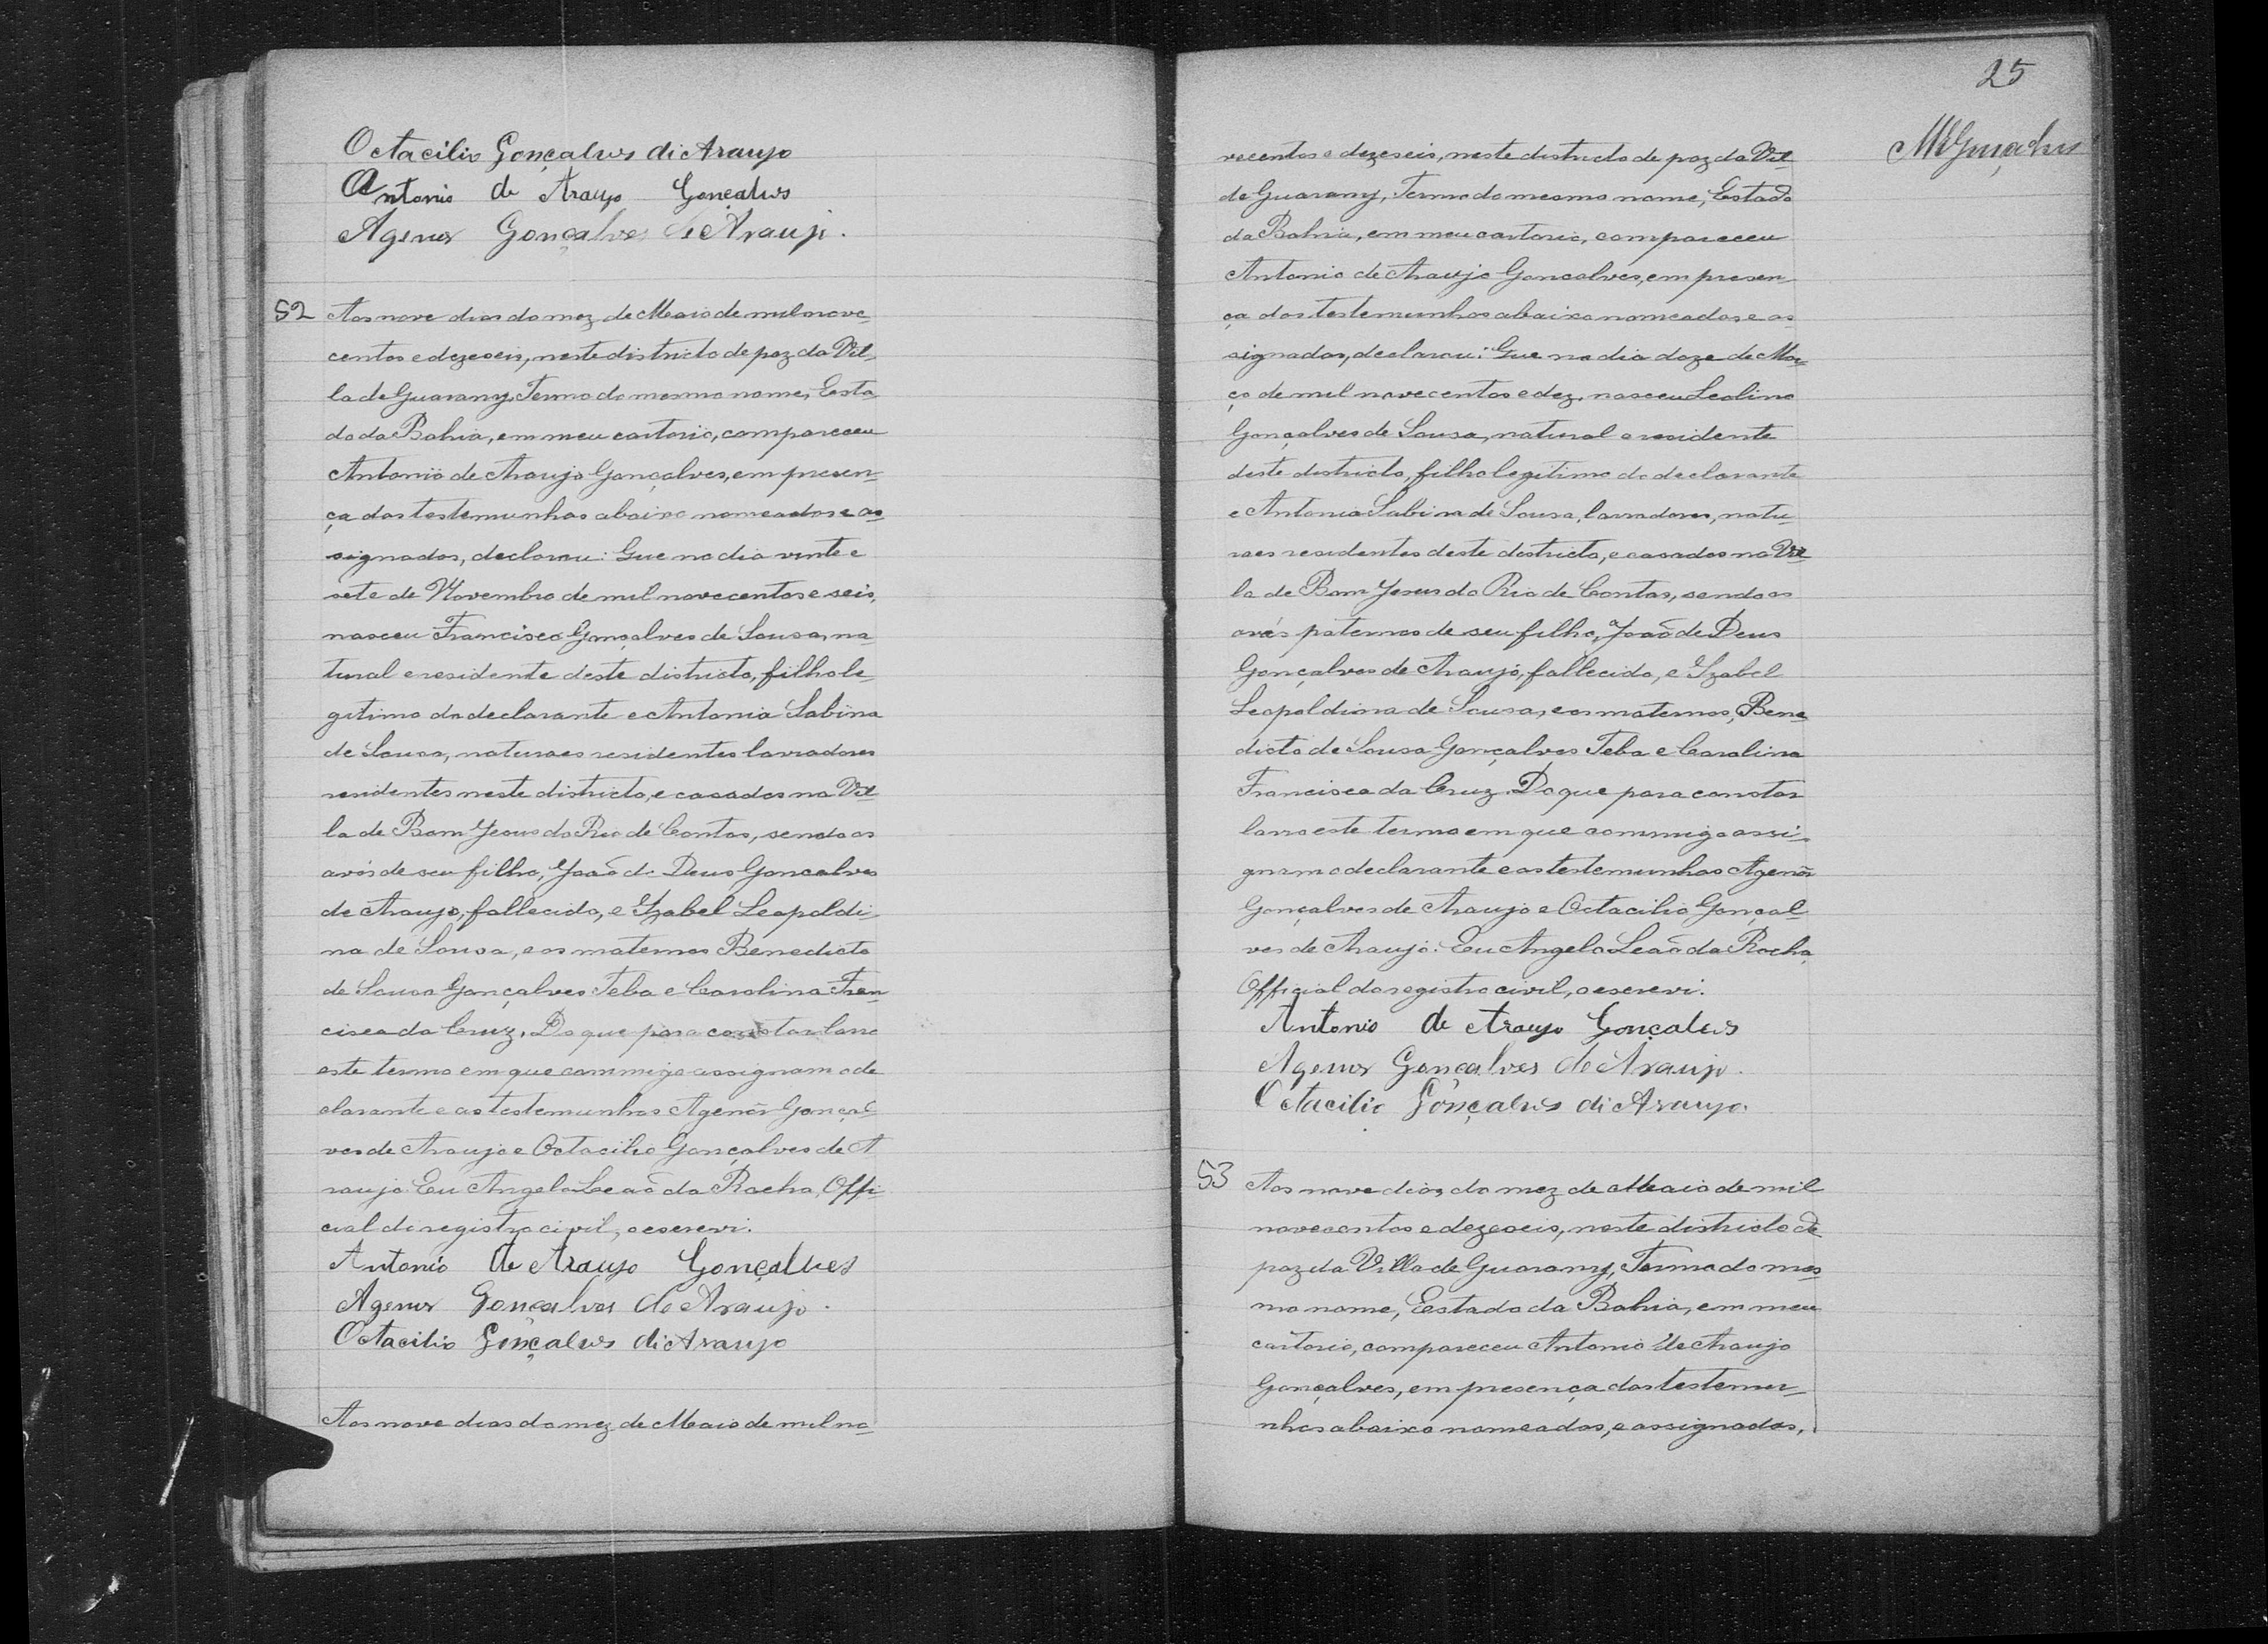 Octacilio Gonçalves di Araujo
Antonio de Araujo Gonçalves
Agenor Gonçalves de Araujo.
52 Aos nove dias do mez de Maio de mil nove-
centos e dezeseis, neste districto de paz da Vil-
la de Guarany, Termo do mesmo nome, Esta-
do da Bahia, em meu cartorio, compareceu
Antonio de Araujo Gonçalves, em presen-
ça das testemunhas abaixo nomeadas e as-
signadas, declarou: Que no dia vinte e
sete de Novembro de mil novecentos e seis,
nasceu Francisco Gonçalves de Sousa, na-
tural e residente deste districto, filho le-
gitimo do declarante e Antonia Sabina
de Sousa, naturaes residentes lavradores
residentes neste districto, e casados na Vil-
la de Bom Jesus do Rio de Contas, sendo os
avós de seu filho, João de Deus Goncalves
de Araujo, fallecido, e Izabel Leopoldi-
na de Sousa, e os maternos Benedicto
de Sousa Gonçalves Teba e Carolina Fran-
cisca da Cruz. Do que para constar lavro
este termo em que commigo assignam o de-
clarante e as testemunhas Agenôr Gonçal-
ves de Araujo e Octacilio Gonçalves de A
raujo. Eu Angelo Leão da Rocha, Offi-
cial do registro civil, o escrevi.
Antonio de Araujo Gonçalves
Agenor Gonçalves de Araujo.
Octacilio Gonçalves di Araujo
Aos nove dias do mez de Maio de mil no-
25
vecentos e dezeseis, neste districto de paz da Vil-
de Guarany, Termo do mesmo nome, Estado
da Bahia, em meu cartorio, compareceu
Antonio de Araujo Goncalves, em presen-
ça das testemunhas abaixo nomeadas e as-
signadas, declarou: Que no dia doze de Mar-
ço de mil novecentos e dez, nasceu Leolino
Gonçalves de Sousa, natural e residente
deste districto, filho legitimo do declarante
e Antonia Sabina de Sousa, lavradores, natu-
raes residentes deste districto, e casados na Vil-
la de Bom Jesus do Rio de Contas, sendo os
avós paternos de seu filho, João de Deus
Gonçalves de Araujo, fallecido, e Izabel
Leopoldina de Sousa, e os maternos, Bene-
dicto de Sousa Gonçalves Teba e Carolina
Francisca da Cruz. Do que para constar
lavro este termo em que commigo assi-
gnam o declarante e as testemunhas Agenôr
Gonçalves de Araujo e Octacilio Gonçal-
ves de Araujo. Eu Angelo Leão da Rocha,
Official do registro civil, o escrevi.
Antonio de Araujo Gonçalves
Agenor Gonçalves de Araujo.
Octacilio Gonçalves di Araujo.
53 Aos nove dias do mez de Maio de mil
novecentos e dezeseis, neste districto de
paz da Villa de Guarany, Termo do mes-
mo nome, Estado da Bahia, em meu
cartorio, compareceu Antonio de Araujo
Gonçalves, em presença das testemu-
nhas abaixo nomeadas, e assignadas,